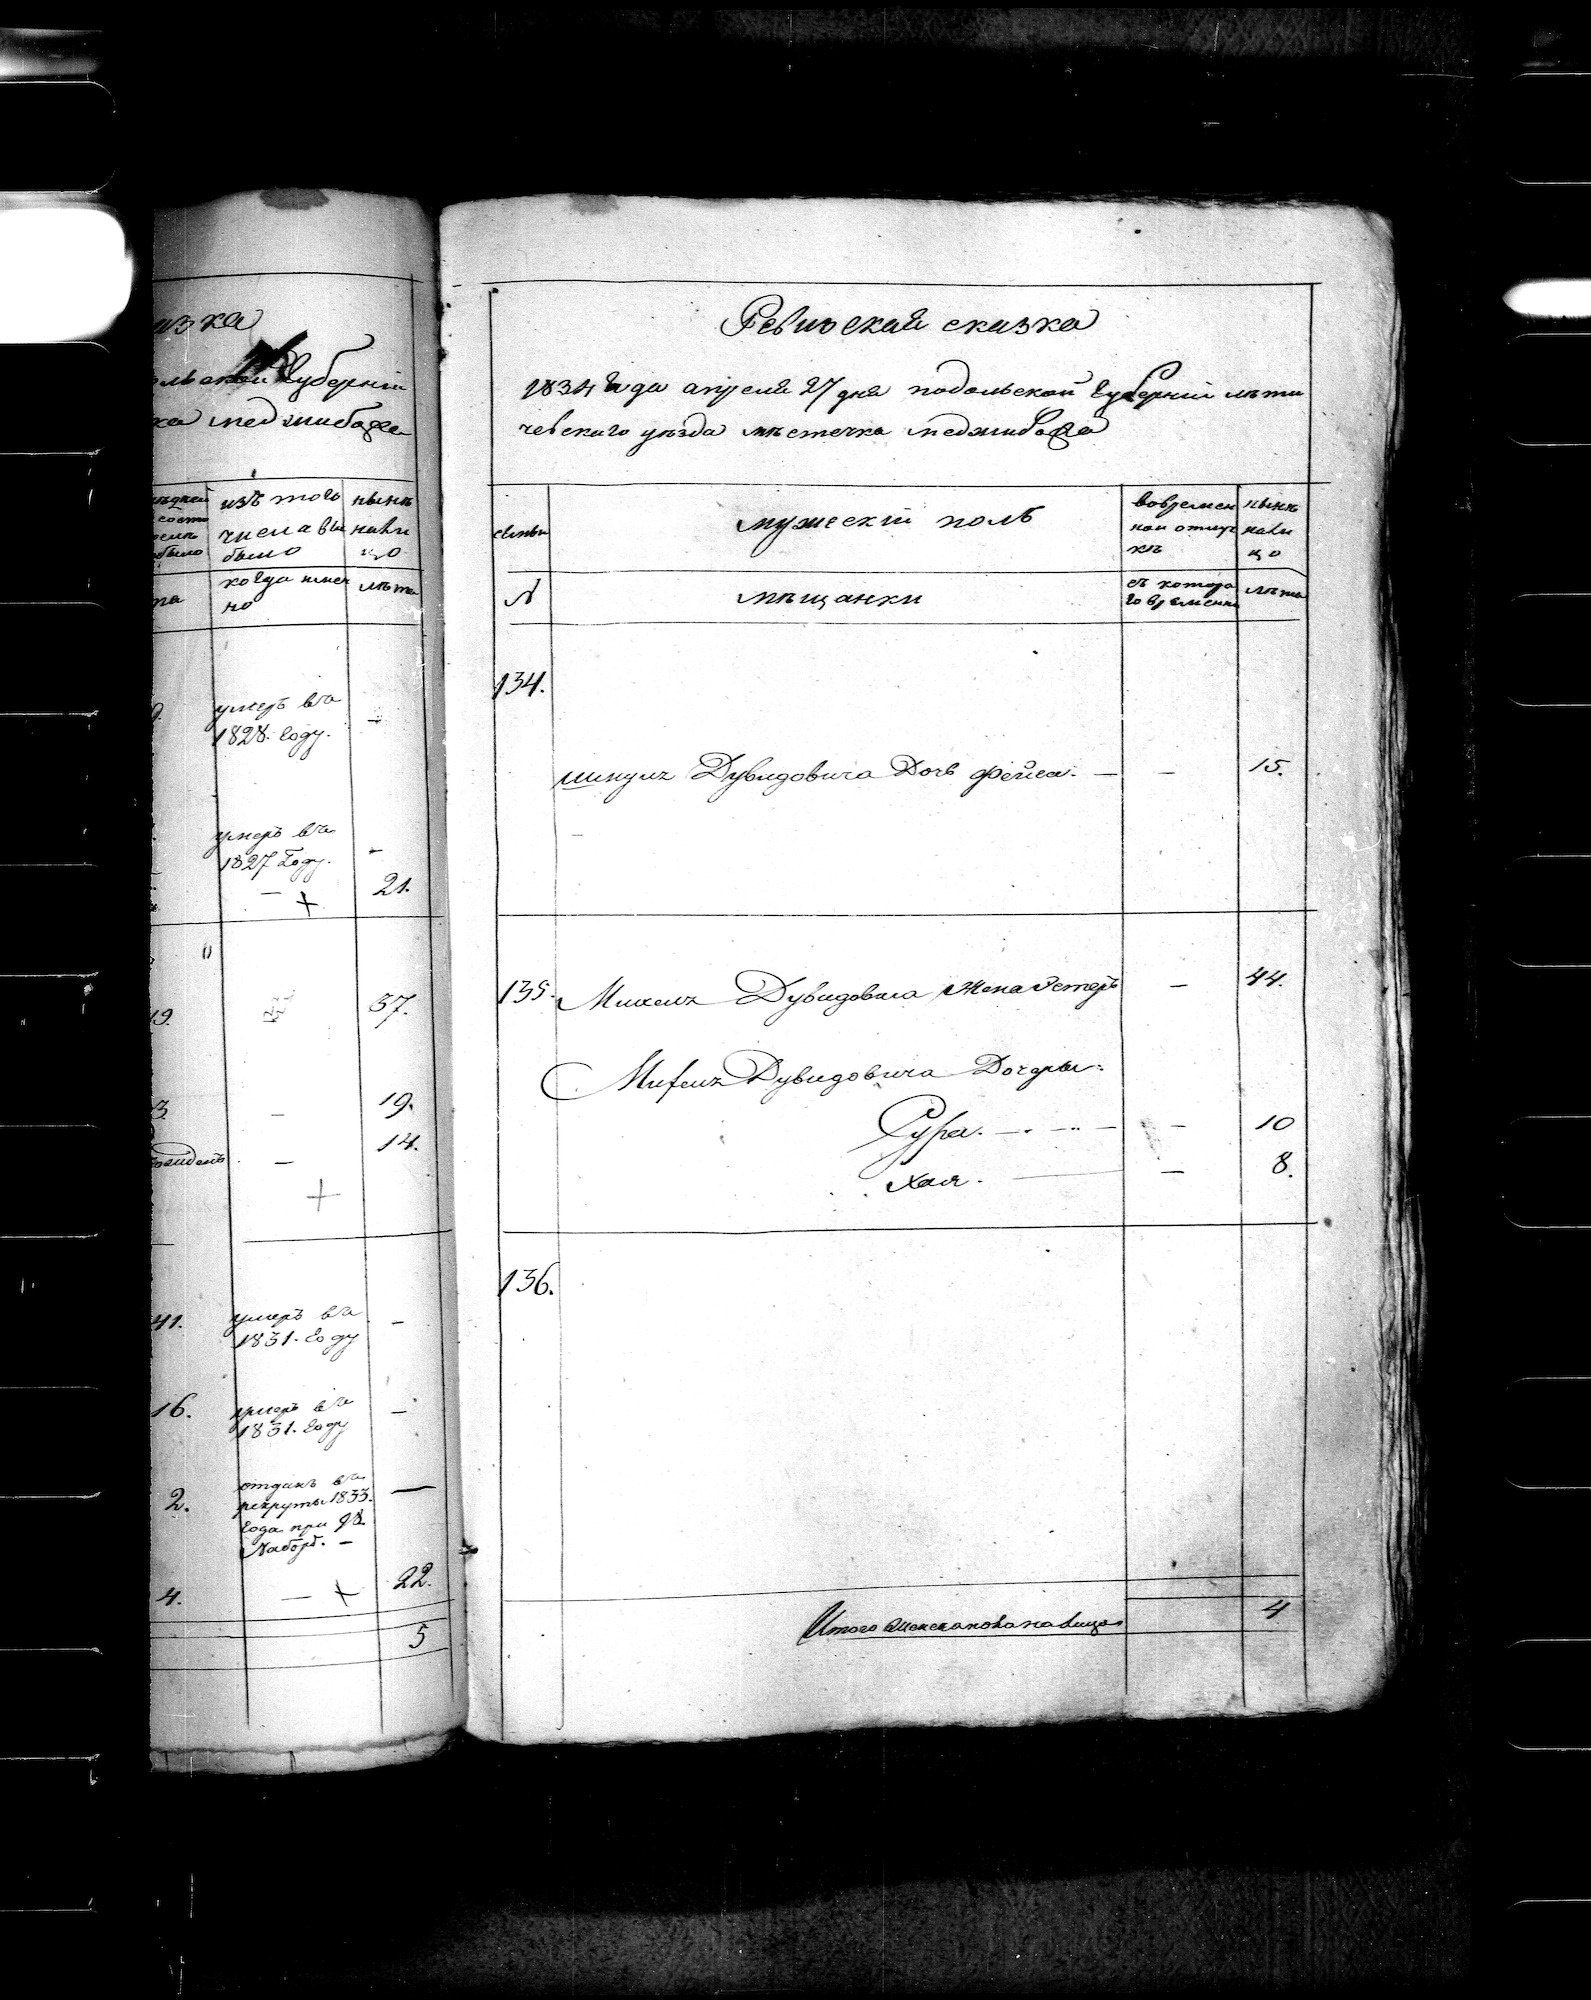 азка
ольской Губерніи
ка меджибожа
изъ того
числа вы
было
нынѣ
нали
цо
когда имен
но
лѣта
умеръ въ
1828. Году.
умеръ въ
1827 Году.
21.
37.
19.
14.
41.
умеръ въ
1831. Году
16.
умеръ въ
1831. Году
2.
отданъ въ
рекруты 1833.
Года при
Наборѣ.
4.
22.
5
Ревизская сказка
1834 Года апреля 27 дня подольской Губерніи лѣти
чевскаго уѣзда мѣстечка меджибожа
семьи
мужескій полъ
вовремен
ной отлуч
кѣ
нынѣ
нали
цо
№
мѣщанки
съ которо
го времени
лѣта
134.
Дувидовича Дочь фейга. — — 15.
135. Михель Дувидовича Жена Эстеръ — 44.
Михель Дувидовича Дочери:
Сура. — 10
Хая. — 8.
136.
Итого женска пола на лицо 4